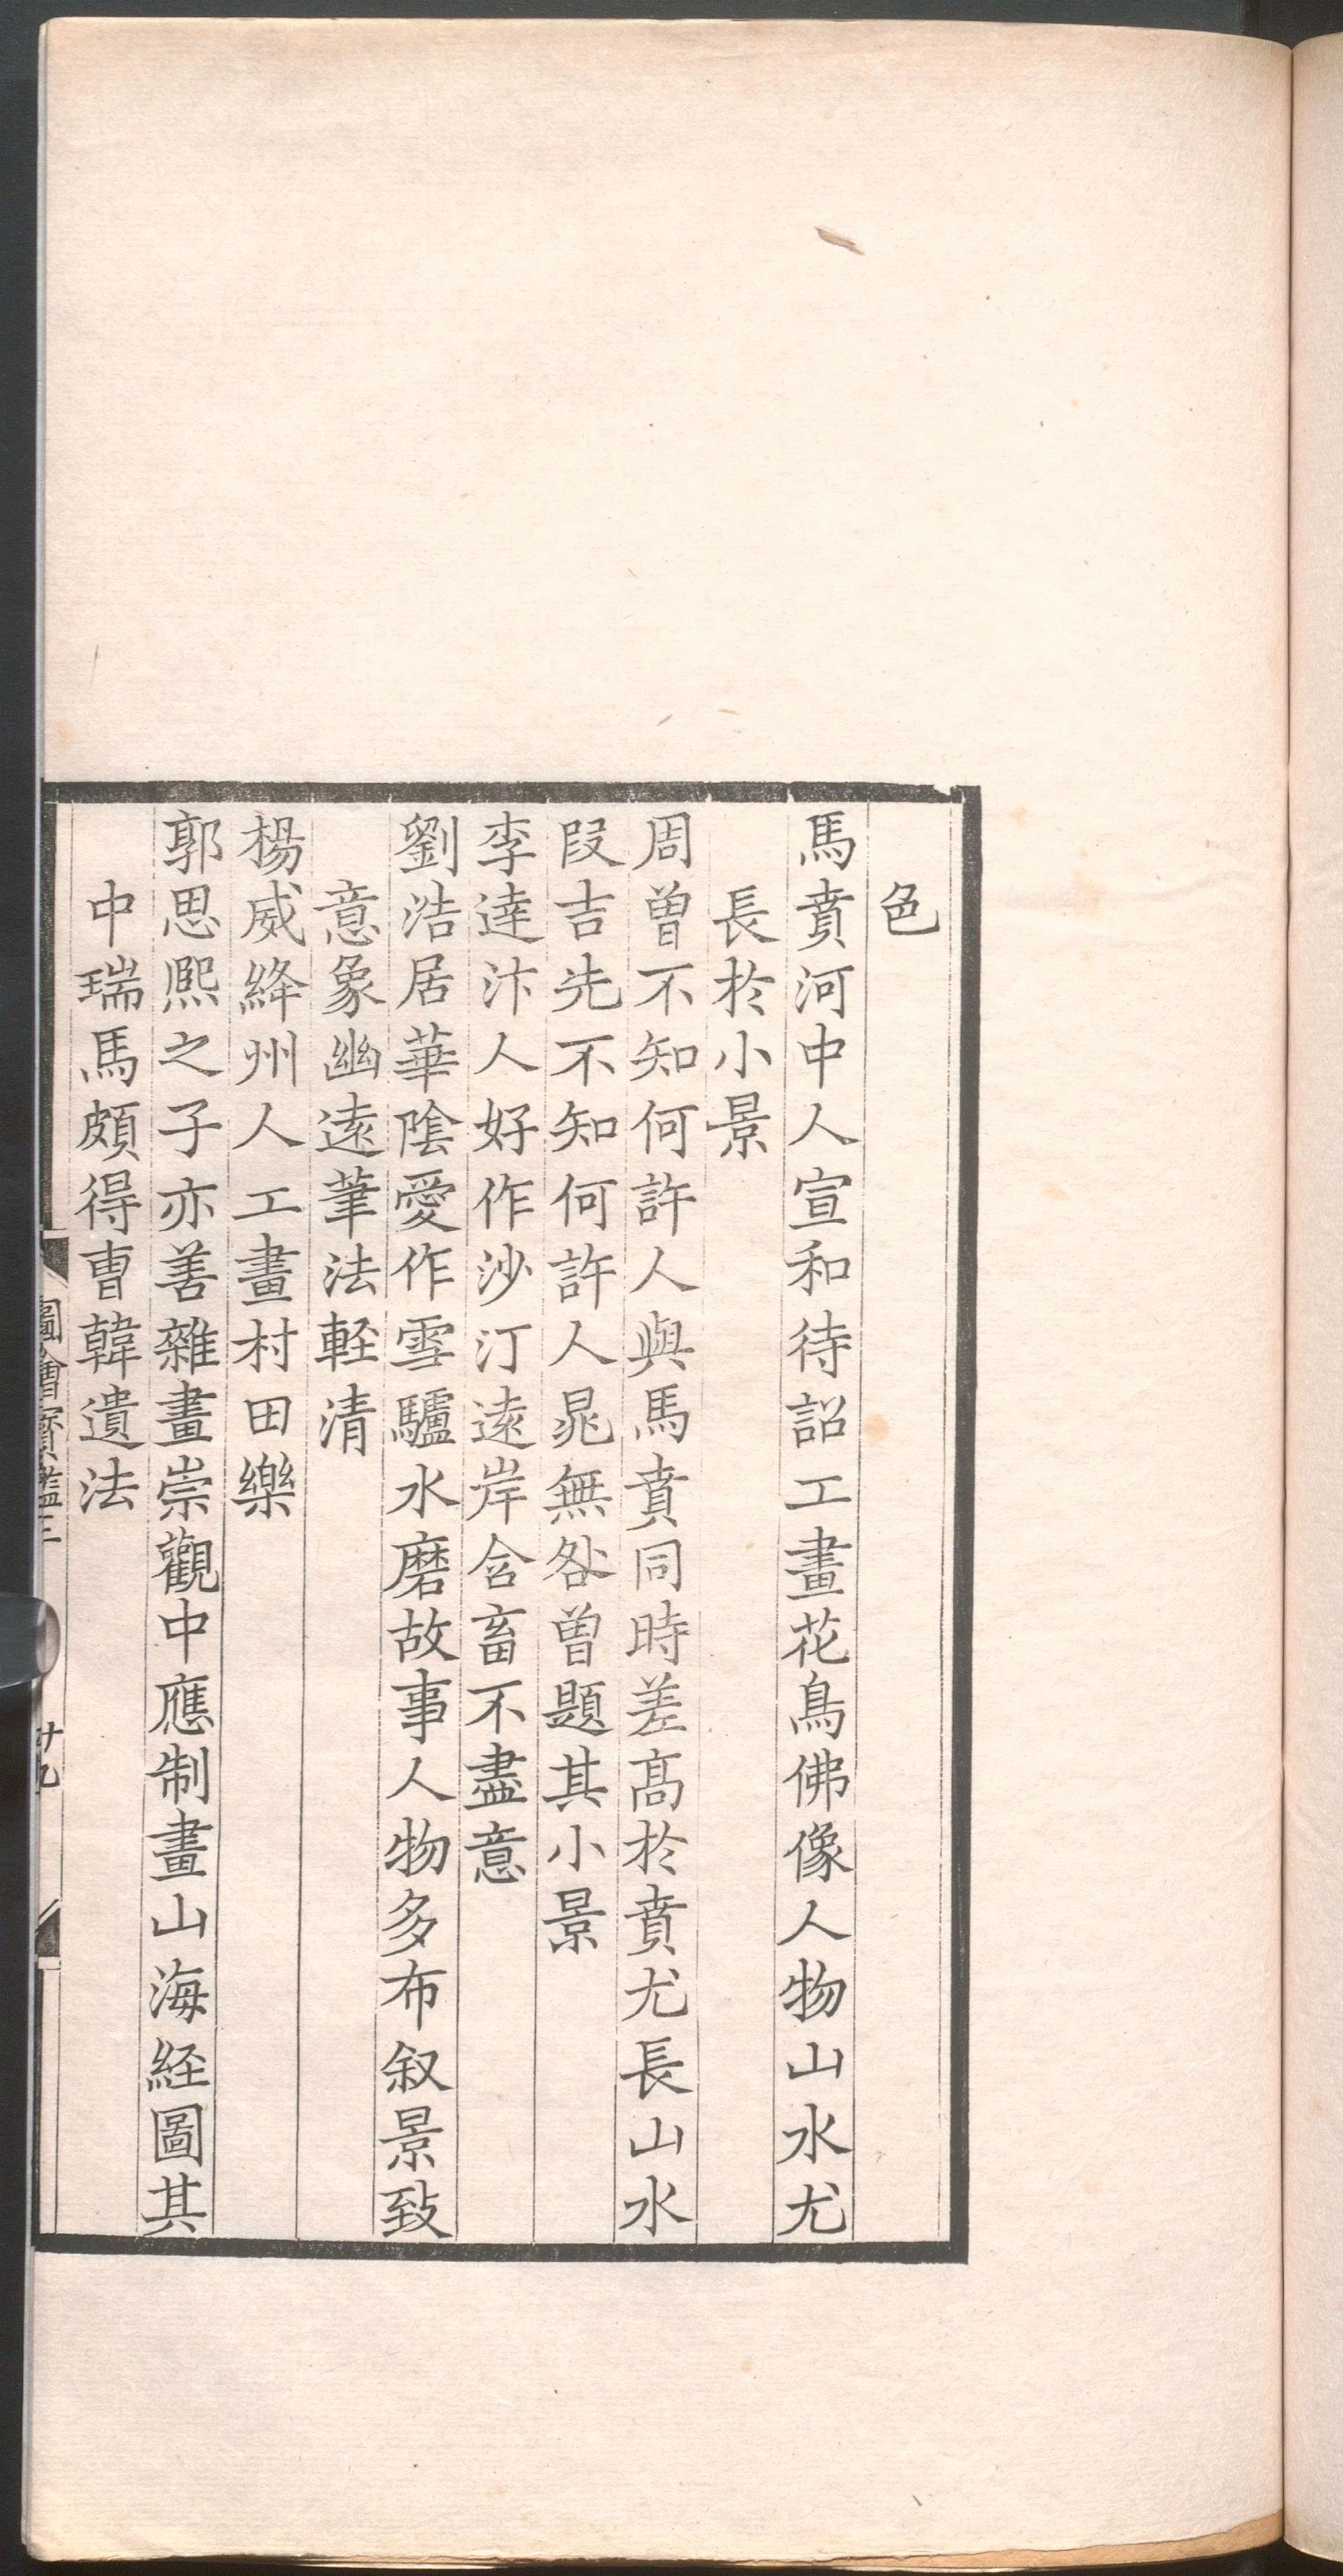 色
馬賁河中人宣和待詔工畫花鳥佛像人物山水尤
長於小景
周曾不知何許人與馬賁同時差髙於賁尤長山水
段吉先不知何許人晁無咎曾題其小景
李達汴人好作沙汀逺岸含畜不盡意
劉浩居華陰愛作雪驢水磨故事人物多布叙景致
意象幽逺筆法軽清
楊威絳州人工畫村田樂
郭思熈之子亦善雜畫崇觀中應制畫山海経圖其
中瑞馬頗得曹韓遺法
圖繪寳鑑三
廿九